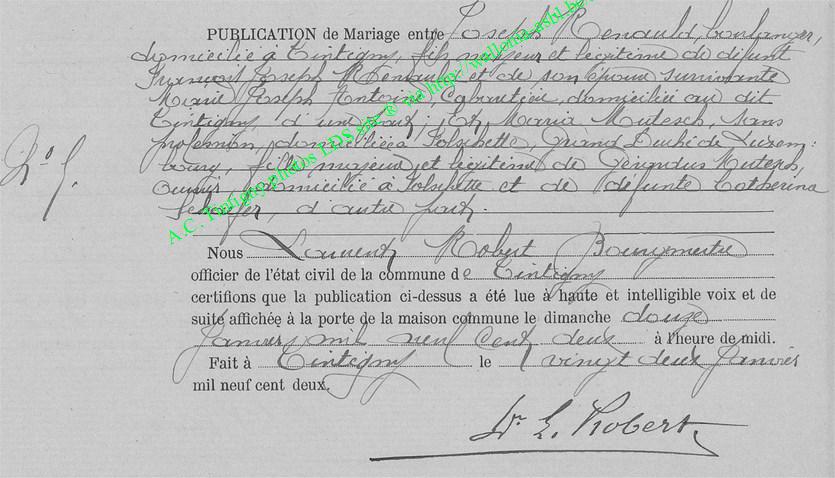 PUBLICATION de Mariage entre Joseph Renauld, boulanger,
domicilié à Tintigny, fils majeur et légitime de défunt
François Joseph Renauld et de son épouse survivante
Marie Joseph Antoine Cabaretière domiciliée au dit
Tintigny, d'une part; Et Maria Mutesch, sans
profession, domiciliée à Folschette, Grand Duché de Luxem:
bourg, fille majeure et légitime de Mutesch,
ouvrier, domicilié à Folschette et de défunte Catherina
d'autre part.
N° 7.
Nous Laurent Robert Bourgmestre
officier de l'état civil de la commune de Tintigny
certifions que la publication ci-dessus a été lue à haute et intelligible voix et de
suite affichée à la porte de la maison commune le dimanche douze
Janvier mil neuf cent deux à l'heure de midi.
Fait à Tintigny le vingt deux Janvier
mil neuf cent deux.
Dr L. Robert
A.C. Tintigny photos LDS sur ® via http://wallonia-asbl.be